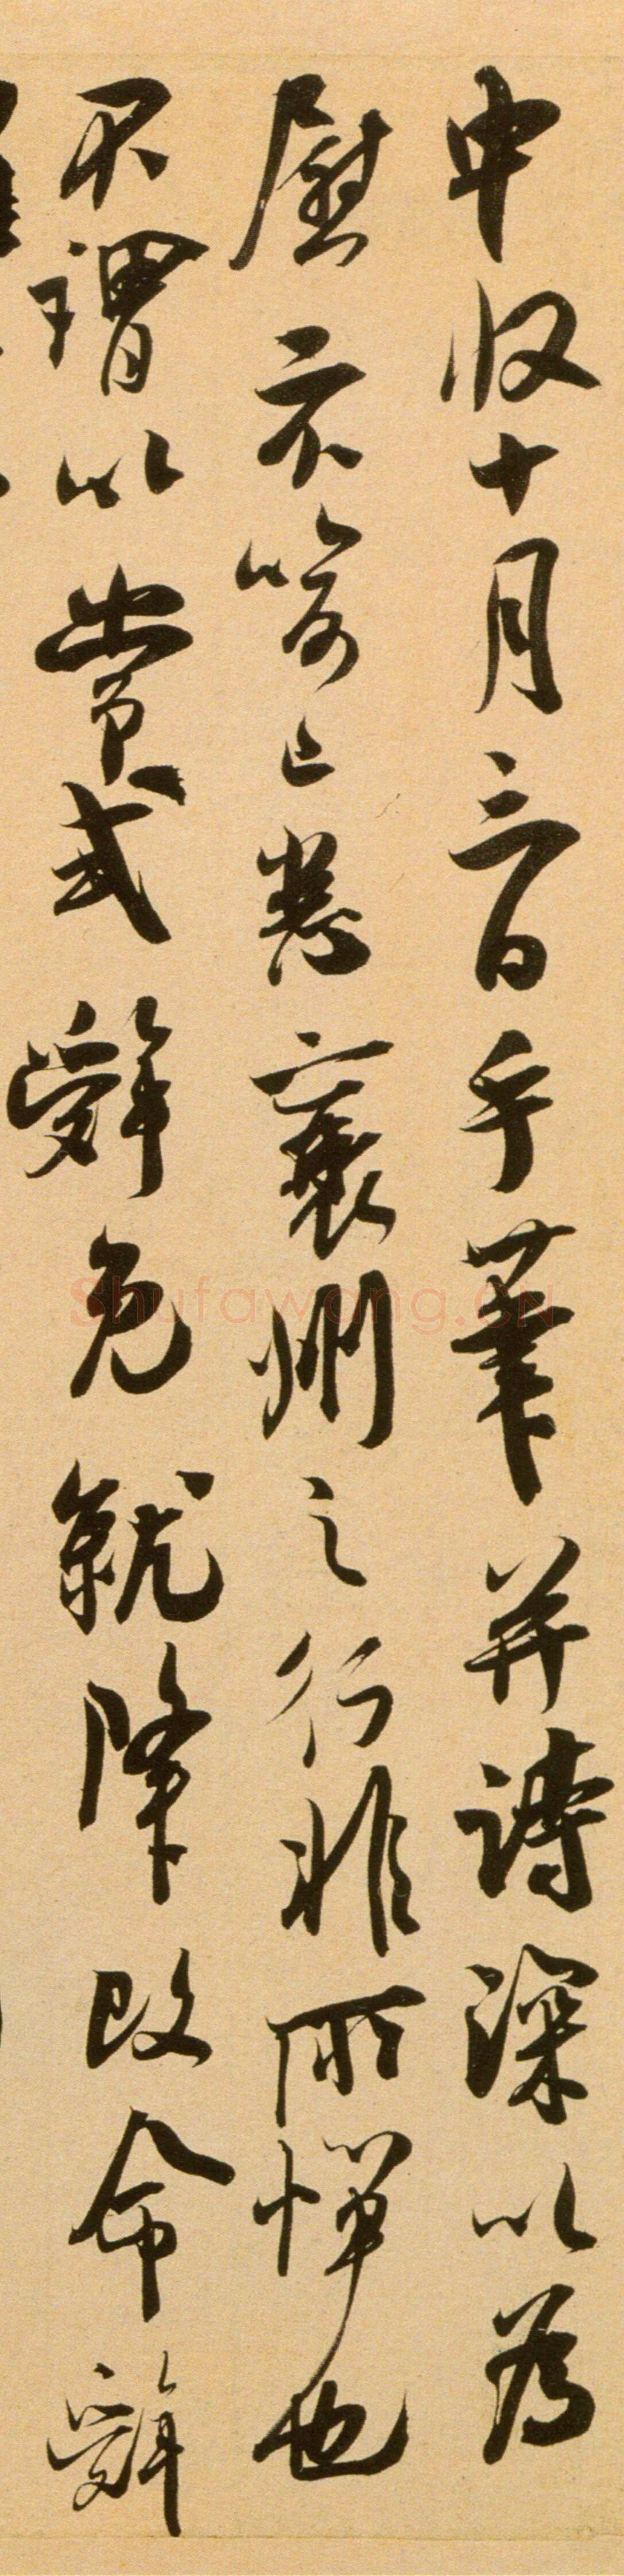 中收十月三日手筆并詩深以為
慰示喻已悉襄州之行非所憚也
不謂以常式辭免就降改命辭
Shufawang.cn